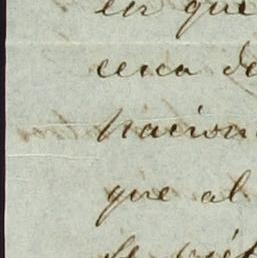 en que
cerca de
Naciona
que al